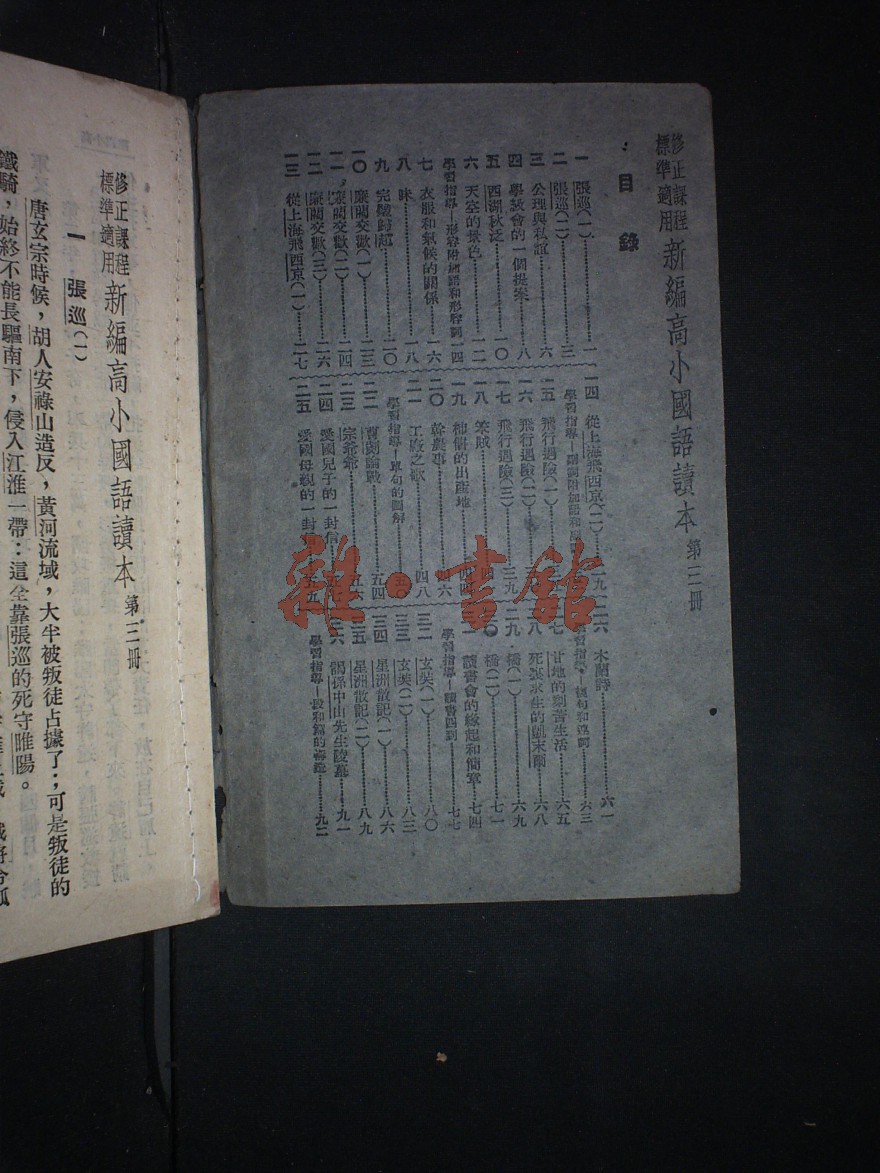 修正課程標準適用 新編高小國語讀本 第三册
目錄
一 張巡(一)……一
二 張巡(二)……三
三 公理與私誼……六
四 學級會的一個提案……八
五 西湖秋泛……一〇
六 天空的景色……一二
學習指導—形容附加語和形容詞 一四
七 衣服和氣候的關係……一六
八 味……一八
九 完璧歸趙……二〇
一〇 廉藺交歡(一)……二三
一一 廉藺交歡(二)……二四
一二 廉藺交歡(三)……二六
一三 從上海飛西京(一)……二七
一四 從上海飛西京(二)
學習指導—副詞附加語和
一五 飛行遇險(一)
一六 飛行遇險(二)
一七 飛行遇險(三)……三九
一八 笨賊
一九 柿餅的出產地
二〇 幹農事……四六
二一 工廠之歌……四八
學習指導—單句的圖解
二二 曹劌論戰……五四
二三 宗爺爺……五六
二四 愛國兒子的一封信
二五 愛國母親的一封
二六 木蘭詩……六一
學習指導—複句和連詞……六三
甘地的刻苦生活……六五
死裏求生的凱末爾……六八
二九 橋(一)……六九
橋(二)……七一
讀書會的緣起和簡章……七四
學習指導—讀書四到……七七
三二 玄奘(一)……八〇
玄奘(二)……八三
三四 星洲散記(一)……八六
星洲散記(二)……八九
謁孫中山先生陵墓……九一
學習指導—段和篇的……九二
雜·書館
修正課程標準適用 新編高小國語讀本 第三册
一 張巡(一)
唐玄宗時候，胡人安祿山造反，黃河流域，大半被叛徒占據了；可是叛徒的
鐵騎，始終不能長驅南下，侵入江淮一帶：這全靠張巡的死守睢陽。